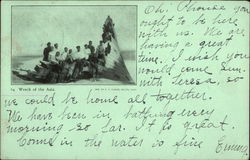 Oh! Choose you
ought to be here
with us. We are
having a great
time. I wish you
would come Sun.
with Teresa, so
we could be home all together.
We have been in bathing every
morning so far. It is great.
Come in the water is fine
Emma
14 Wreck of the Asia